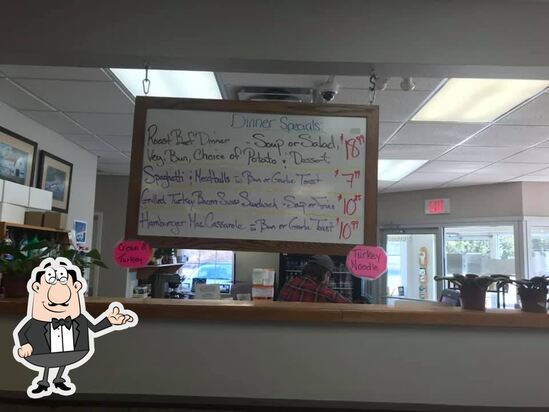 Dinner Specials
Roast Beef Dinner - Soup or Salad,
Veg, Bun, Choice of Potato & Dessert
$18.99
Spaghetti & Meatballs = Bun or Garlic Toast
$7.99
Grilled Turkey Bacon Swiss Sandwich - Soup or Fries
$10.25
Hamburger Mac Casserole = Bun or Garlic Toast
$10.99
Cream of
Turkey
Turkey
Noodle
EXIT